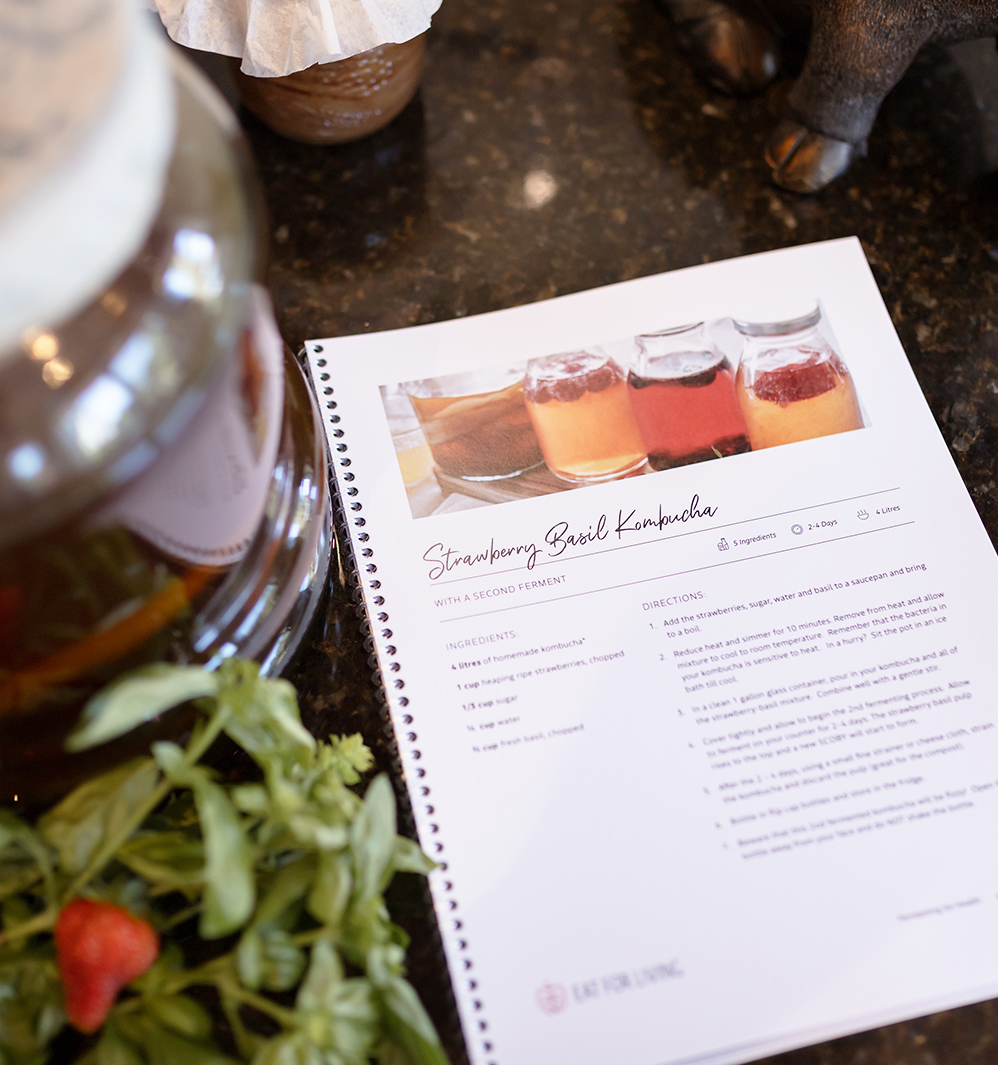 Strawberry Basil Kombucha
5 Ingredients
2-4 Days
4 Litres
WITH A SECOND FERMENT
INGREDIENTS:
4 litres of homemade kombucha*
1 cup heaping ripe strawberries, chopped
1/3 cup sugar
cup water
cup fresh basil, chopped
DIRECTIONS:
1. Add the strawberries, sugar, water and basil to a saucepan and bring
to a boil.
2. Reduce heat and simmer for 10 minutes. Remove from heat and allow
mixture to cool to room temperature. Remember that the bacteria in
your kombucha is sensitive to heat. In a hurry? Sit the pot in an ice
bath till cool.
3. In a clean 1 gallon glass container, pour in your kombucha and all of
the strawberry-basil mixture. Combine well with a gentle stir.
4. Cover tightly and allow to begin the 2nd fermenting process. Allow
to ferment on your counter for 2-4 days. The strawberry basil pulp
rises to the top and a new SCOBY will start to form.
5. After the 2 - 4 days, using a small fine strainer or cheese cloth, strain
the kombucha and discard the pulp (great for the compost).
6. Bottle in flip cap bottles and store in the fridge.
7. Beware that this 2nd fermented kombucha will be fizzy! Open
bottle away from your face and do NOT shake the bottle.
Fermenting for Health
EAT FOR LIVING